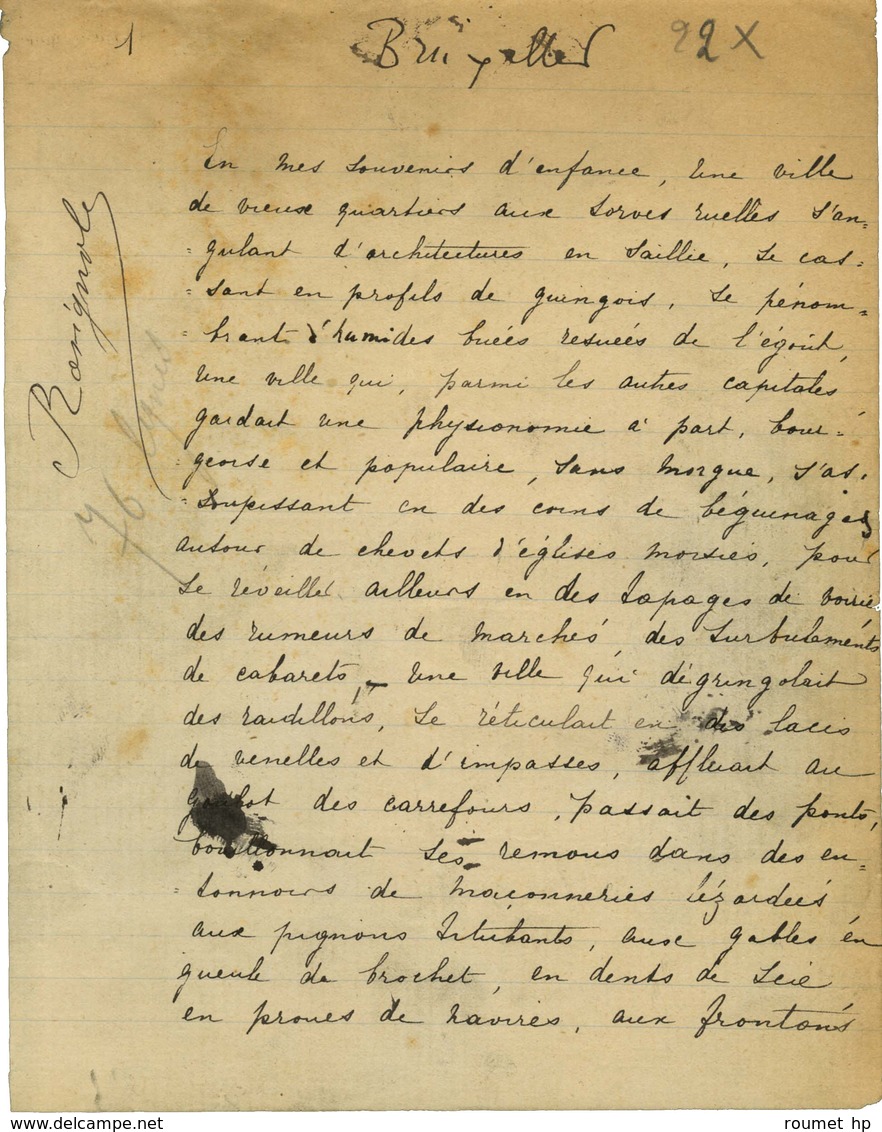 1
Bruxelles
22 X
En mes souvenirs d'enfance, une ville
de vieux quartiers aux torves ruelles s'an-
-gulant d'architectures en saillie, se cas-
-sant en profils de guingois, se pénom-
-brant d'humides buées resuées de l'égoût,
une ville qui, parmi les autres capitales
gardait une physionomie à part, bour-
-geoise et populaire, sans morgue, s'as-
-soupissant en des coins de béguinages
autour de chevets d'églises moisies, pour
se réveiller ailleurs en des tapages de voirie
des rumeurs de marchés, des turbulements
de cabarets, – une ville qui dégringolait
des raidillons, se réticulait en des lacis
de venelles et d'impasses, affluait au
goulot des carrefours, passait des ponts,
bouillonnait ses remous dans des en-
-tonnoirs de maçonneries lézardées
aux pignons titubants, aux gables en
gueule de brochet, en dents de scie
en proues de navires, aux frontons
76
roumet hp